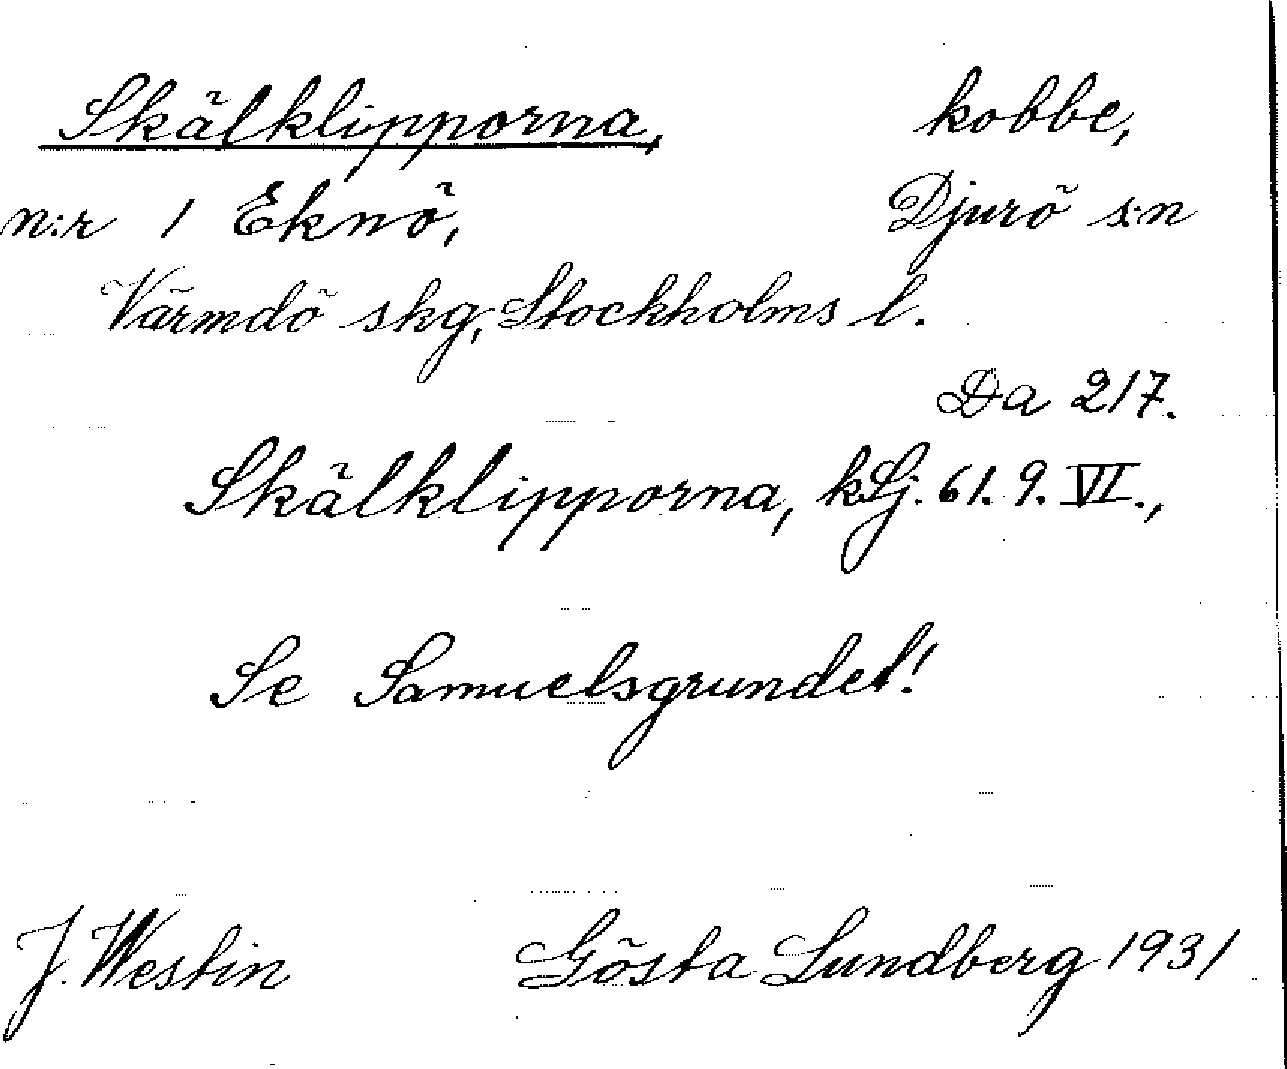 Skälklipporna, kobbe,
n:r 1 Eknö, Djurö s:n
Värmdö skg, Stockholms l.
Da 217.
Skälklipporna, kLj. 61. 9. VI.,
Se Samuelsgrundet!
J. Westin Gösta Lundberg 1931